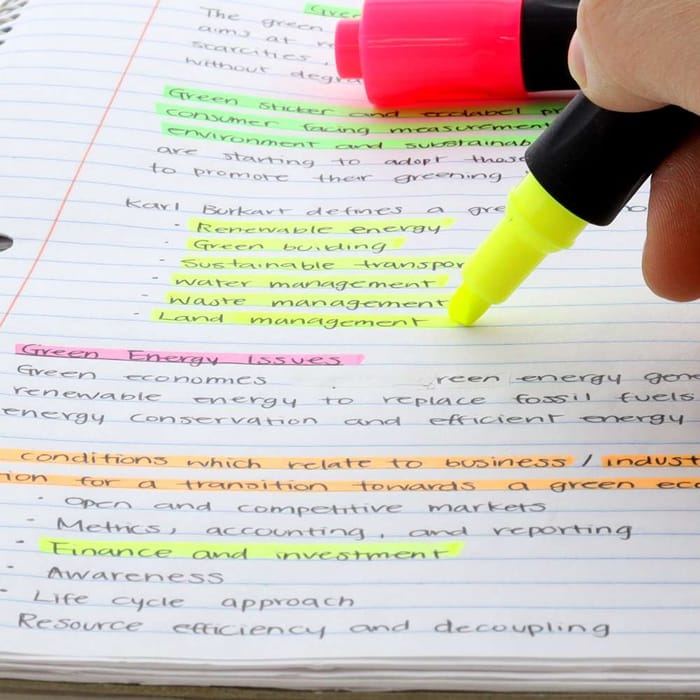 The green
aims at
scarcities,
without
Green sticker and ecolabel
consumer facing measurement
environment and
are starting to adopt
to promote their greening
Karl Burkart defines a
- Renewable energy
- Green building
- Sustainable
- Water management
- Waste management
- Land management
Green Energy Issues
Green economies energy
renewable energy to replace fossil fuels.
energy conservation and efficient energy
conditions which relate to business /
for a transition towards a green
- Open and competitive markets
- Metrics, accounting, and reporting
- Finance and investment
- Awareness
- Life cycle approach
Resource efficiency and decoupling